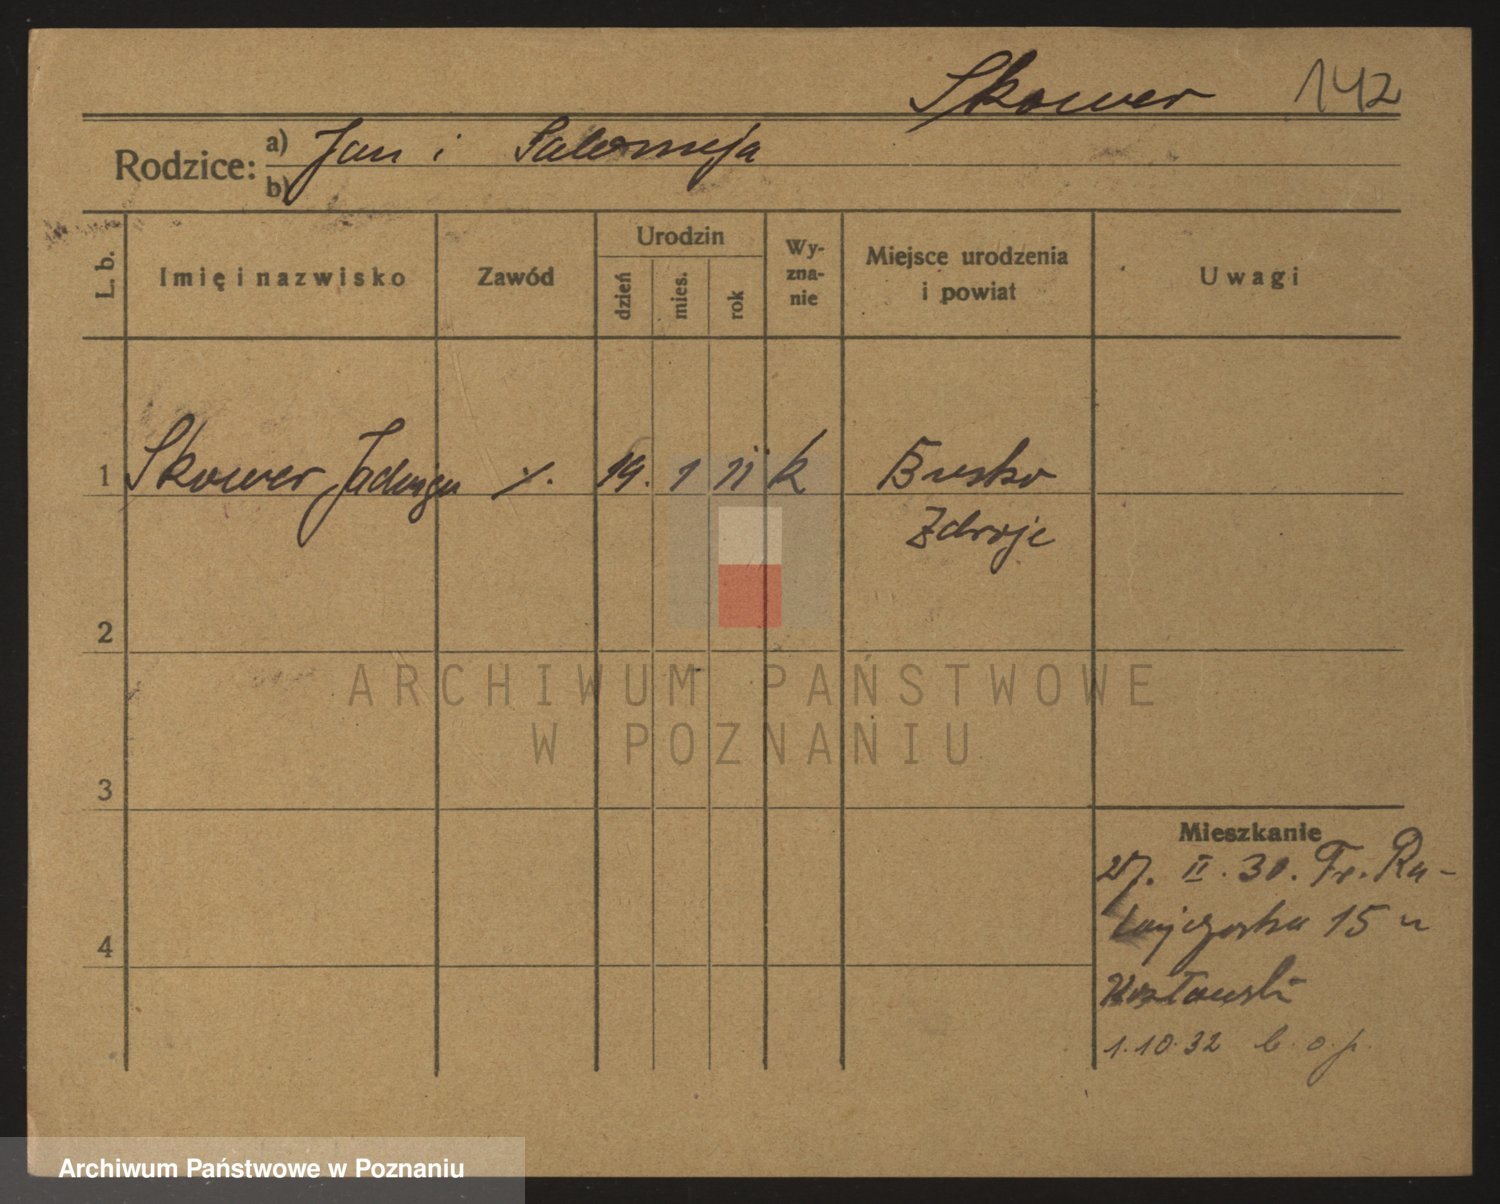 Skower 142
Rodzice: a) Jan i Salomeja
b)
L. b.
Imię i nazwisko
Zawód
Urodzin
dzień
mies.
rok
Wy-
zna-
nie
Miejsce urodzenia
i powiat
Uwagi
1 Skower Jadwiga 19. 1 11 k Busko
Zdroje
2
3
4
Mieszkanie
27. II. 30. Fr. Ra-
tajczaka 15 u
Kozłowski
1.10.32 b. o. p.
ARCHIWUM PAŃSTWOWE
W POZNANIU
Archiwum Państwowe w Poznaniu